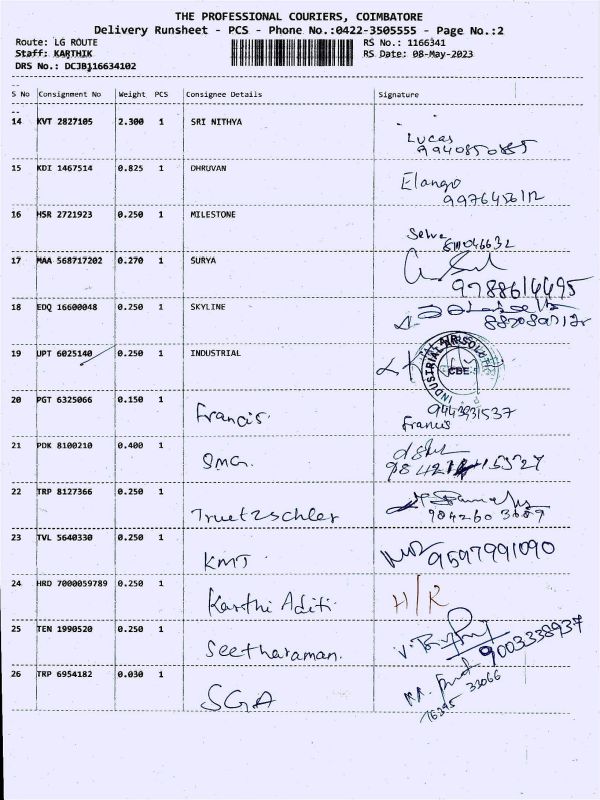 THE PROFESSIONAL COURIERS, COIMBATORE
Delivery Runsheet - PCS - Phone No.:0422-3505555 - Page No.:2
Route: LG ROUTE RS No.: 1166341
Staff: KARTHIK RS Date: 08-May-2023
DRS No.: DCJB116634102
S No Consignment No Weight PCS Consignee Details Signature
14 KVT 2827105 2.300 1 SRI NITHYA
Lucas
15 KDI 1467514 0.825 1 DHRUVAN
Elango
16 HSR 2721923 0.250 1 MILESTONE
Selva
17 MAA 568717202 0.270 1 SURYA
9788614495
18 EDQ 16600048 0.250 1 SKYLINE
19 UPT 6025140 0.250 1 INDUSTRIAL
CBE
20 PGT 6325066 0.150 1 Francis.
Francis
21 PDK 8100210 0.400 1 SMG.
22 TRP 8127366 0.250 1 Truetzschler
23 TVL 5640330 0.250 1 KMT. 9597991090
24 HRD 7000059789 0.250 1 Karthi Aditi. H/R
25 TEN 1990520 0.250 1 Seetharaman. 9003338937
26 TRP 6954182 0.030 1 SGA
76395 33066